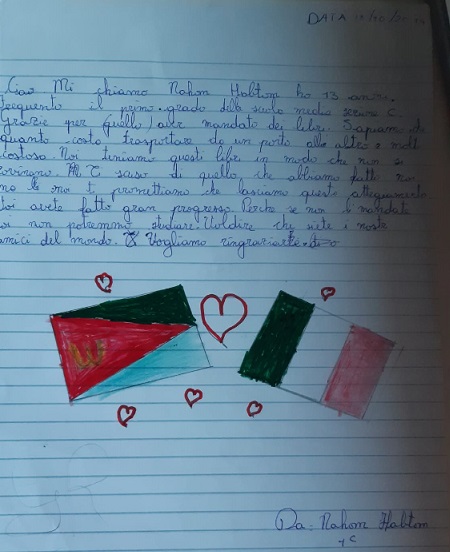 DATA
Ciao Mi chiamo Nahom Habtom ho 13 anni.
frequento il primo grado della scuola media
Grazie per (quello) che mandato dei libri. Sapiamo che
quanto costa trasportare da un punto alla altro e molto
costoso. Noi teniamo questi libri in modo che non si
rovinano. di quello che abbiamo fatto noi
ma le noi t promettiamo che lasciamo questo atteguamento
Voi avete fatto gran progresso. Perche se non mandate
noi non potremmo studiare. Voldire che siete i nostri
amici del mondo. Vogliamo ringraziarte
Da: Nahom Habtom
7 C